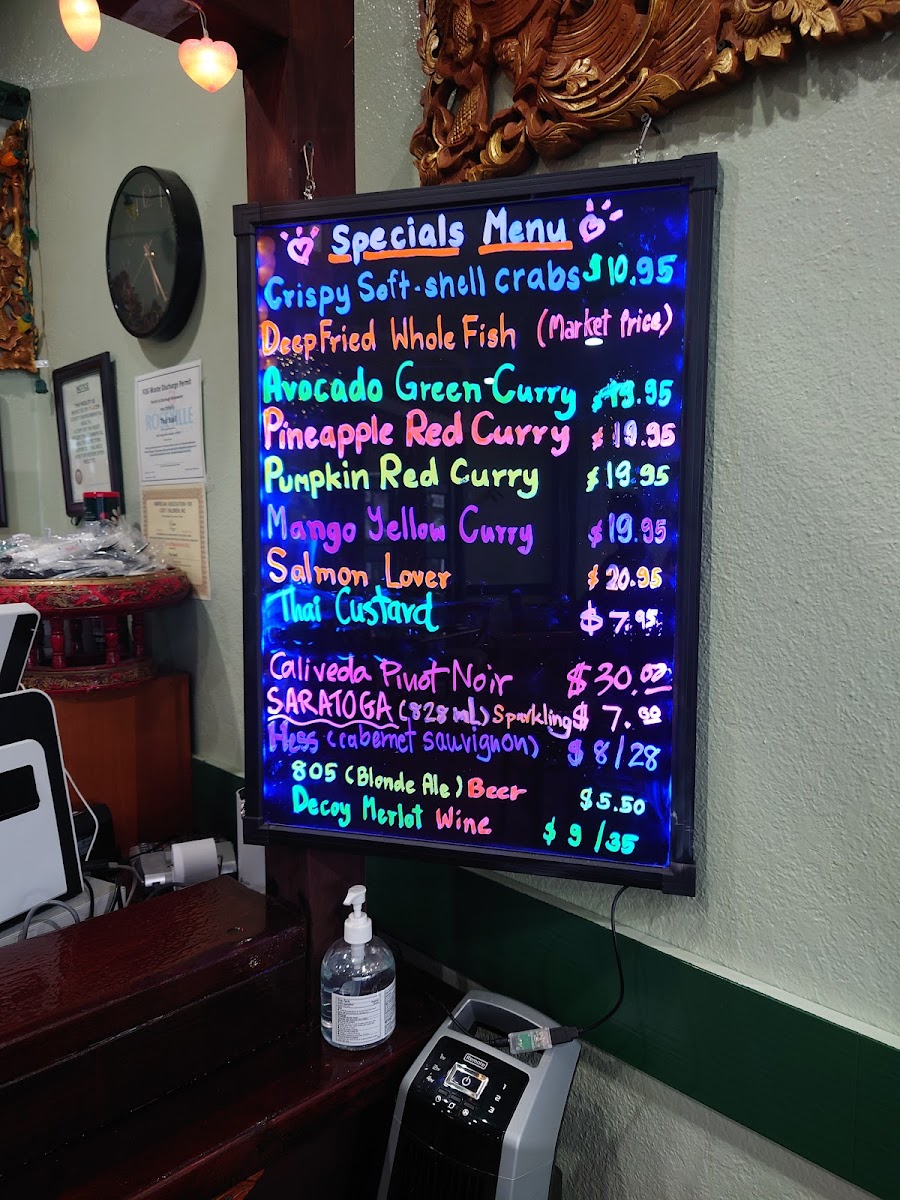 Specials Menu
Crispy Soft-shell crabs $10.95
Deep Fried Whole Fish (Market Price)
Avocado Green Curry $19.95
Pineapple Red Curry $19.95
Pumpkin Red Curry $19.95
Mango Yellow Curry $19.95
Salmon Lover $20.95
Thai Custard $7.95
Caliveda Pinot Noir $30.00
SARATOGA (828 mL) Sparkling $7.50
Hess (cabernet sauvignon) $8/28
805 (Blonde Ale) Beer $5.50
Decoy Merlot Wine $9/35
NOTICE
FOG Waste Discharge Permit
Remote
1
2
3